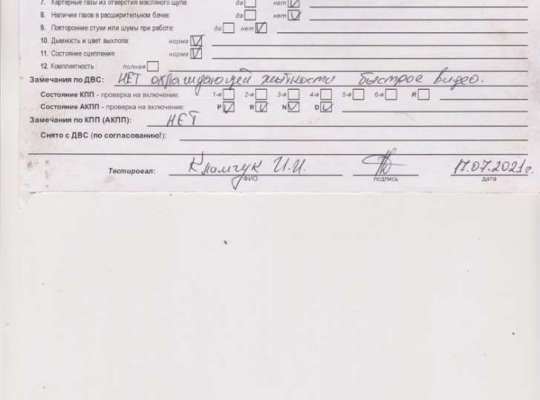 7. Картерные газы из отверстия масляного щупа: да нет
8. Наличие газов в расширительном бачке: да нет
9. Повторонние стуки или шумы при работе: да нет
10. Дымность и цвет выхлопа: норма
11. Состояние сцепления: норма
12. Комплектность: полная
Замечания по ДВС: НЕТ охлаждающей жидкости быстрое видео.
Состояние КПП - проверка на включение: 1-я 2-я 3-я 4-я 5-я 6-я R
Состояние АКПП - проверка на включение: P R N D
Замечания по КПП (АКПП): НЕТ
Снято с ДВС (по согласованию!):
Тестировал: И.И. 17.07.2021г.
ФИО подпись дата